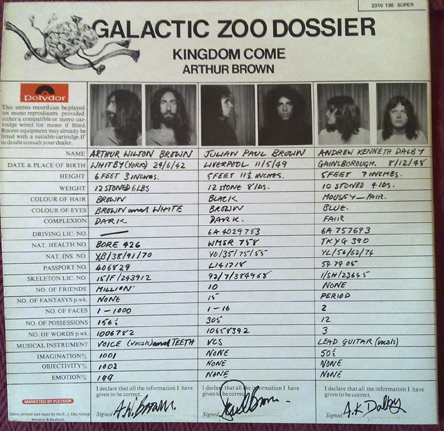 2310 130 SUPER
GALACTIC ZOO DOSSIER
KINGDOM COME
ARTHUR BROWN
Polydor
This stereo record can be played
on mono reproducers provided
either a compatible or stereo cart-
ridge wired for mono is fitted.
Recent equipment may already be
fitted with a suitable cartridge. If
in doubt consult your dealer.
NAME ARTHUR WILTON BROWN JULIAN PAUL BROWN ANDREW KENNETH DALBY
DATE & PLACE OF BIRTH WHITBY (YORK) 24/6/42 LIVERPOOL 11/5/49 GAINSBOROUGH. 8/12/48
HEIGHT 6 FEET 3 INCHES. 5 FEET 11½ INCHES. 5 FEET 7 INCHES.
WEIGHT 12 STONE 6 LBS 12 STONE 8 LBS. 10 STONE 4 LBS.
COLOUR OF HAIR BROWN BLACK MOUSEY - FAIR.
COLOUR OF EYES BROWN and WHITE BROWN BLUE.
COMPLEXION DARK DARK. FAIR
DRIVING LIC. NO. — 6A 4029753 6A 757693
NAT. HEALTH NO. BORE 426 WMSR 758 TKYG 390
NAT. INS. NO. YB/38/91/70 YO/35/75/55 YL/56/52/74
PASSPORT NO. 406829 L141718 54 79 05
SKELETON LIC. NO. 15/F/243912 92/7/384968 1/SH/23645
NO. OF FRIENDS MILLION 10 NONE
NO. OF FANTASYS p.wk. NONE 15 PERIOD
NO. OF FACES 1-1000 1-16 2
NO. OF POSSESSIONS 156½ 305 12
NO. OF WORDS p.wk. 1006782 10658392 3
MUSICAL INSTRUMENT VOICE (vocals) and TEETH VCS LEAD GUITAR (vocals)
IMAGINATION% 1001 NONE 50½
OBJECTIVITY% 1002 NONE NONE
EMOTION% 199 NONE NONE
I declare that all the information I have
given to be correct.
Signed A.W. Brown.
I declare that all the information I have
given to be correct.
Signed Paul Brown.
I declare that all the information I have
given to be correct.
Signed A.K Dalby
MARKETED BY POLYDOR